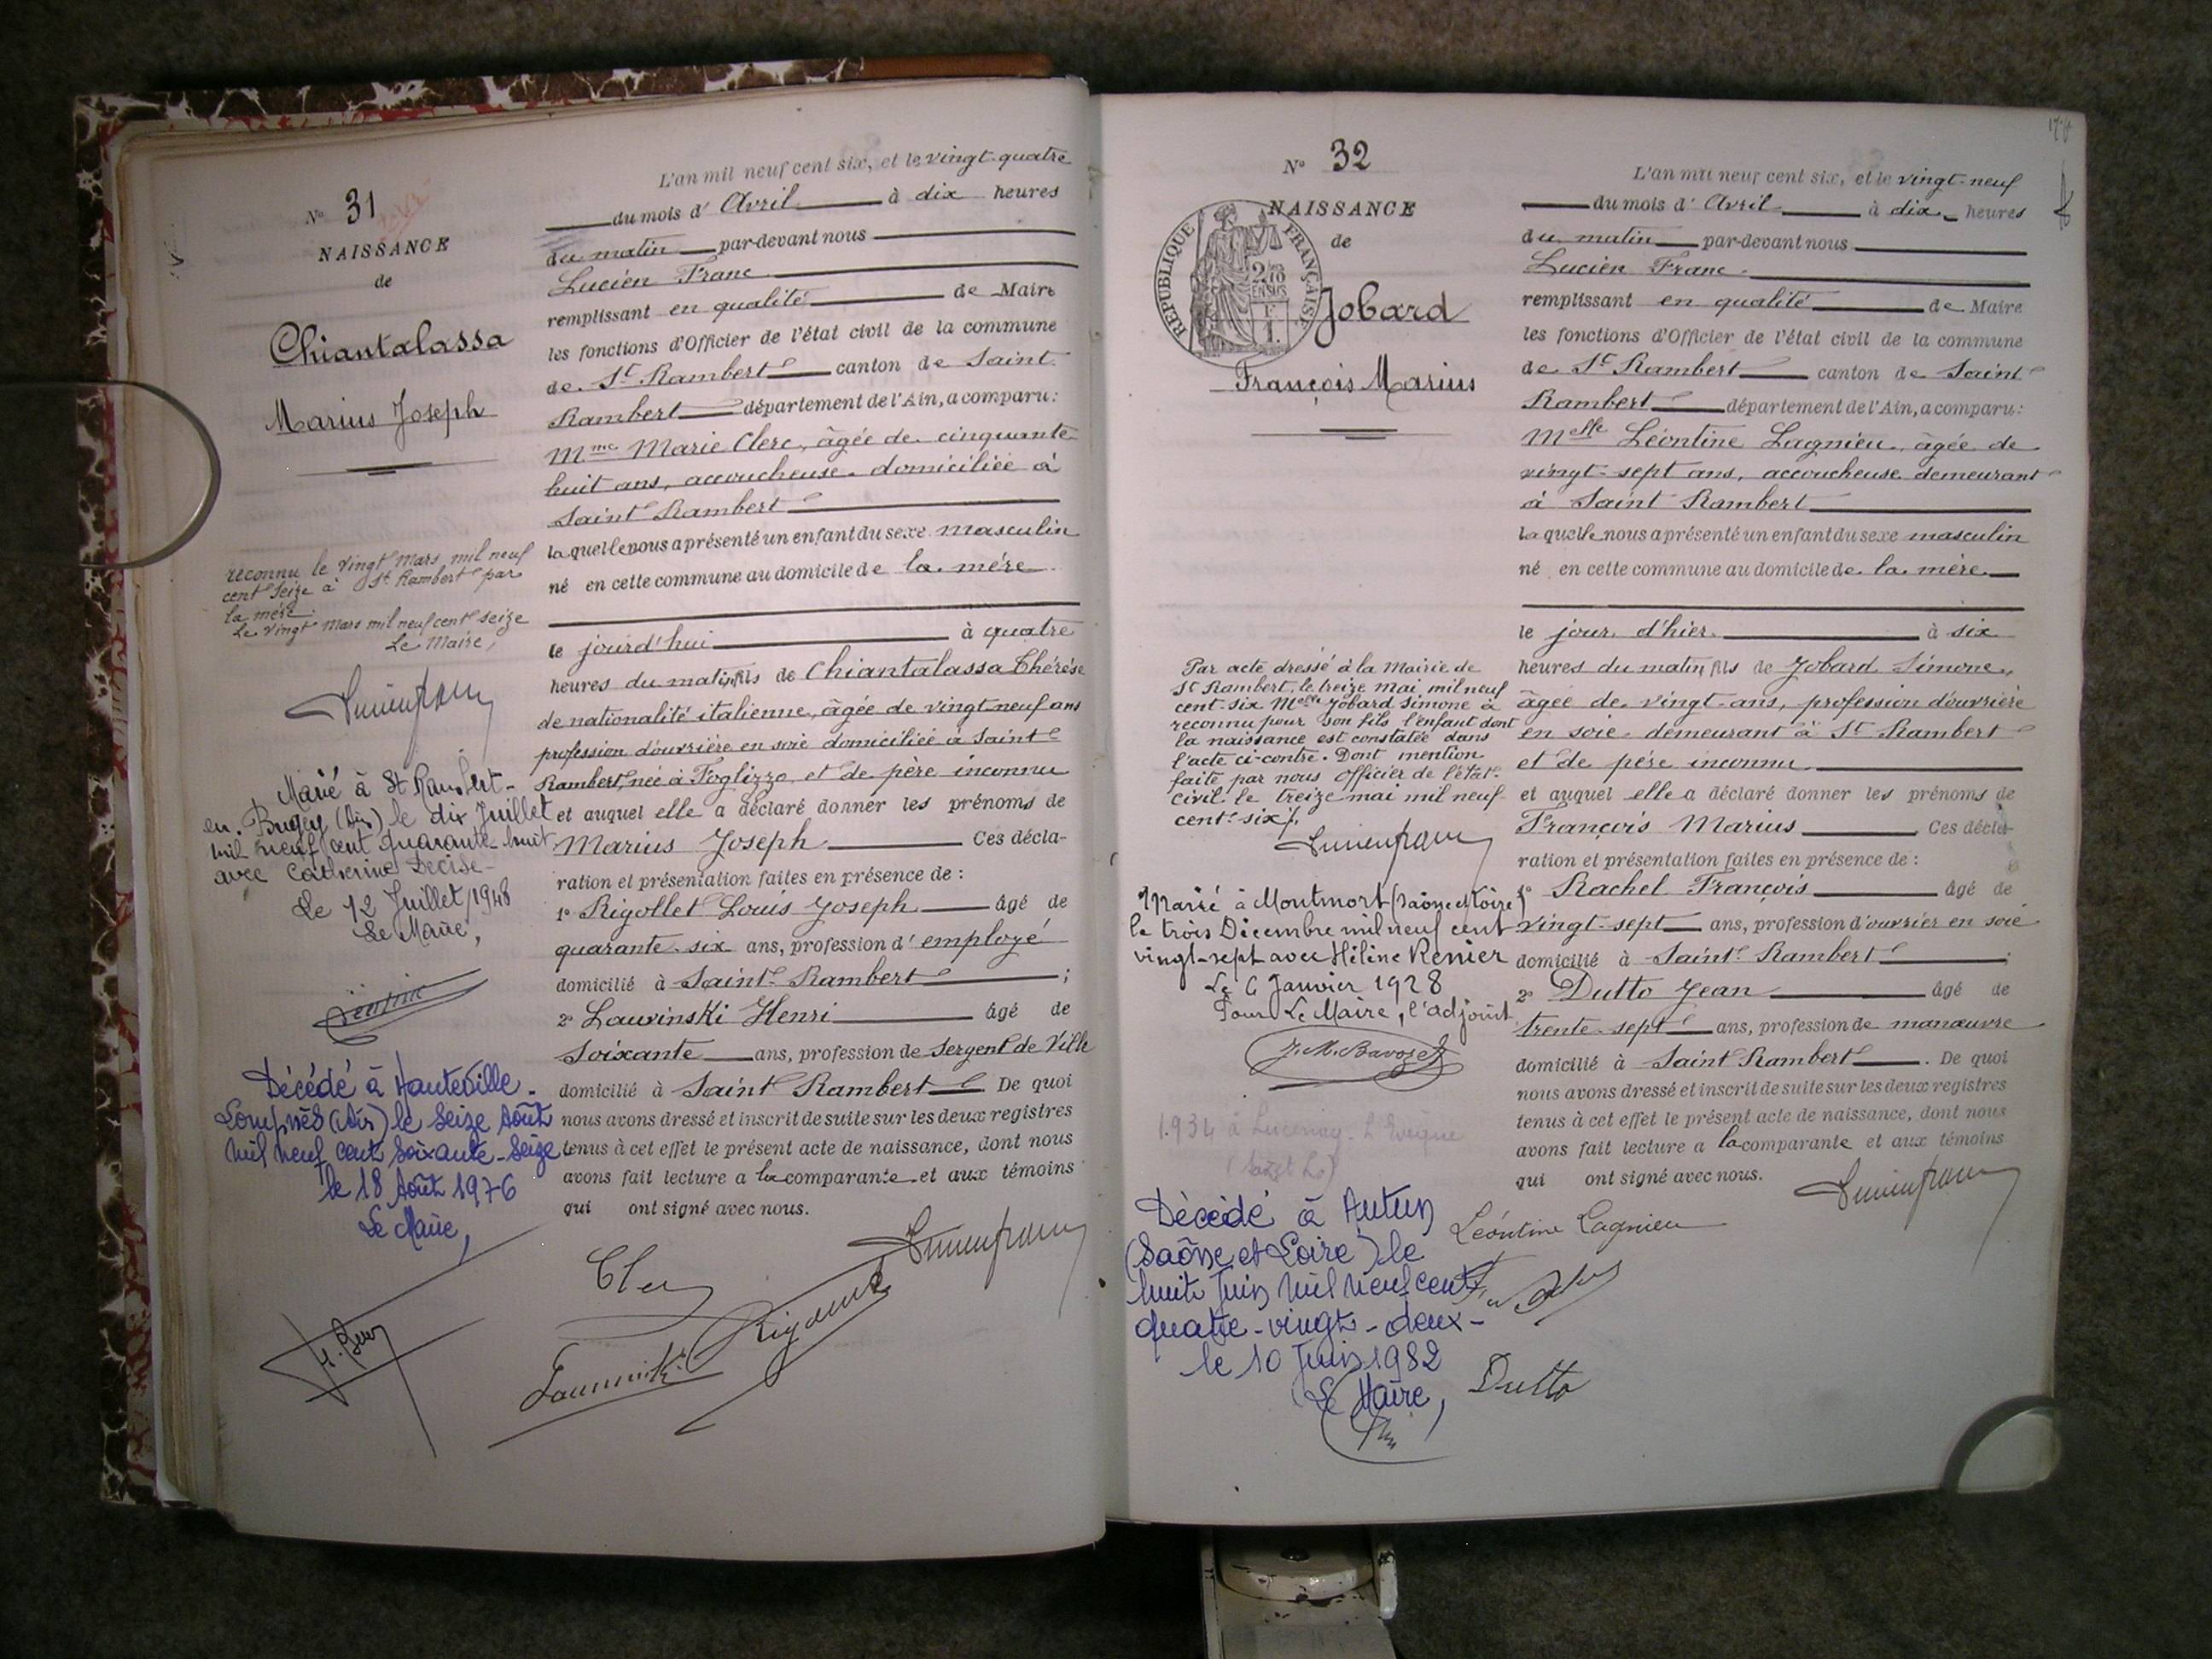 N° 31
NAISSANCE
de
Chiantalassa
Marius Joseph
reconnu le vingt mars mil neuf
cent seize à St Rambert par
la mère.
Le vingt Mars mil neuf cent seize
Le Maire,
Marié à St Rambert-
en-Bugey (Ain) le dix Juillet
mil neuf cent quarante huit
avec Catherine Decise-
Le 12 Juillet 1948
Le Maire,
Décédé à Hauteville-
Lompnès (Ain) le seize Août
mil neuf cent soixante-seize
le 18 Août 1976
Le Maire,
L'an mil neuf cent six, et le vingt-quatre
du mois d'Avril à dix heures
du matin par-devant nous
Lucien Franc
remplissant en qualité de Maire
les fonctions d'Officier de l'état civil de la commune
de St Rambert canton de Saint
Rambert département de l'Ain, a comparu:
Mme Marie Clerc, âgée de cinquante
huit ans, accoucheuse domiciliée à
Saint Rambert
laquelle nous a présenté un enfant du sexe masculin
né en cette commune au domicile de la mère
le jourd'hui à quatre
heures du matin, fils de Chiantalassa Thérèse
de nationalité italienne, âgée de vingt-neuf ans
profession d'ouvrière en soie domiciliée à Saint
Rambert, née à Foglizzo, et de père inconnu
et auquel elle a déclaré donner les prénoms de
Marius Joseph Ces décla-
ration et présentation faites en présence de :
1° Rigollet Louis Joseph âgé de
quarante-six ans, profession d'employé
domicilié à Saint-Rambert ;
2° Lauvinski Henri âgé de
Soixante ans, profession de Sergent de Ville
domicilié à Saint Rambert De quoi
nous avons dressé et inscrit de suite sur les deux registres
tenus à cet effet le présent acte de naissance, dont nous
avons fait lecture a la comparante et aux témoins
qui ont signé avec nous.
N° 32
NAISSANCE
de
RÉPUBLIQUE FRANÇAISE
2/10
EN SUS
1 F.
Jobard
François Marius
Par acte dressé à la Mairie de
St Rambert, le treize mai mil neuf
cent-six Melle Jobard Simone a
reconnu pour son fils l'enfant dont
la naissance est constatée dans
l'acte ci-contre. Dont mention
faite par nous Officier de l'état-
civil le treize mai mil neuf
cent-six/.
Marié à Montmort (Saône & Loire)
le trois Décembre mil neuf cent
vingt-sept avec Hélène Renier
Le 6 Janvier 1928
Pour Le Maire, l'adjoint
J.M. Bavozet
1.934 à Lucenay-L'Evèque
(Décédé à Autun
(Saône et Loire) le
huit Juin mil neuf cent
quatre-vingt-deux-
le 10 Juin 1982
Le Maire,
L'an mil neuf cent six, et le vingt-neuf
du mois d'Avril à dix heures
du matin par-devant nous
Lucien Franc
remplissant en qualité de Maire
les fonctions d'Officier de l'état civil de la commune
de St Rambert canton de Saint
Rambert département de l'Ain, a comparu:
Melle Léontine Lagnieu, âgée de
vingt-sept ans, accoucheuse demeurant
à Saint Rambert
laquelle nous a présenté un enfant du sexe masculin
né en cette commune au domicile de la mère
le jour d'hier à six
heures du matin, fils de Jobard Simone,
âgée de vingt-ans, profession d'ouvrière
en soie demeurant à St Rambert
et de père inconnu
et auquel elle a déclaré donner les prénoms de
François Marius Ces décla-
ration et présentation faites en présence de :
1° Rachel François âgé de
vingt-sept ans, profession d'ouvrier en soie
domicilié à Saint-Rambert ;
2° Dutto Jean âgé de
trente-sept ans, profession de manœuvre
domicilié à Saint Rambert. De quoi
nous avons dressé et inscrit de suite sur les deux registres
tenus à cet effet le présent acte de naissance, dont nous
avons fait lecture a la comparante et aux témoins
qui ont signé avec nous.
Léontine Lagnieu
Dutto